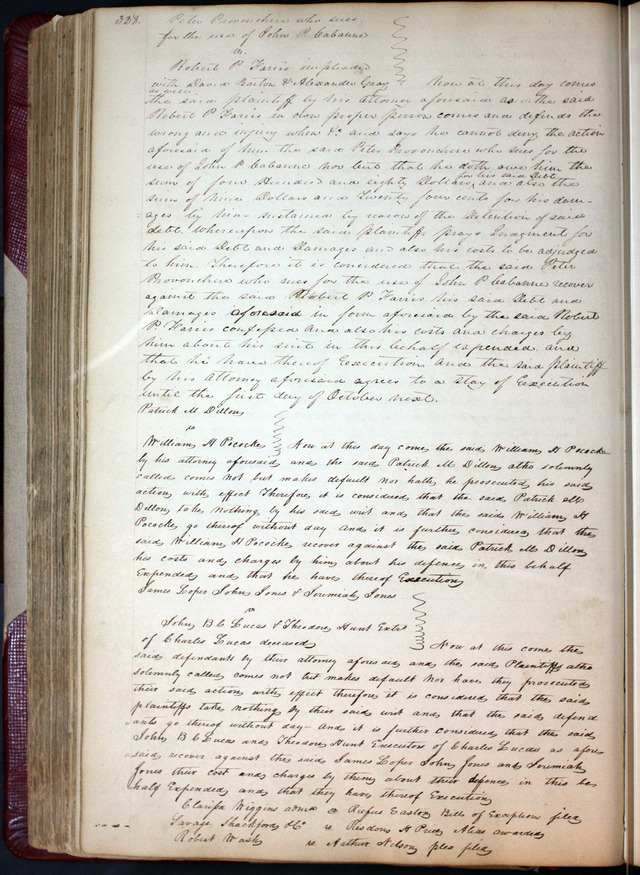 328.
Peter Provenchere who sues
for the use of John P Cabanne
vs.
Robert P Farris impleaded
with David Barton & Alexander Gray Now at this day comes
as well
the said plaintiff by his attorney aforesaid as the said
Robert P Farris in own proper person comes and defends the
wrong and injury when &c and says he cannot deny the action
aforesaid of him the said Peter Provenchere who sues for the
use of John P Cabanne nor but that he doth owe him the
for his said Debt
sum of four Hundred and eighty Dollars, and also the
sum of Nine Dollars and Twenty four cents for his dam-
ages by him sustained by reason of the detention of said
debt. Whereupon the said plaintiff prays Judgment for
his said Debt and Damages and also his costs to be adjudged
to him. Therefore it is considered that the said Peter
Provenchere who sues for the use of John P Cabanne recover
against the said Robert P Farris his said Debt and
Damages aforesaid in form aforesaid by the said Robert
P Farris confessed and also his costs and charges by
him about his suit in this behalf expended and
that he have thereof Execution and the said plaintiff
by his Attorney aforesaid agrees to a stay of Execution
until the first day of October next.
Patrick M Dillon
vs
William H Pococke Now at this day come the said William H Pococke
by his attorney aforesaid and the said Patrick M Dillon altho solemnly
called comes not but makes default nor hath he prosecuted his said
action with effect Therefore it is considered that the said Patrick M
Dillon take nothing by his said writ and that the said William H
Pococke go thereof without day and it is further considered that the
said William H Pococke recover against the said Patrick M Dillon
his costs and charges by him about his defence in this behalf
Expended and that he have thereof Execution
James Loper John Jones & Jeremiah Jones
vs
John B C Lucas & Theodore Hunt Exts
of Charles Lucas deceased Now at this come the
said defendants by their attorney aforesaid and the said Plaintiffs altho
solemnly called comes not but makes default Nor have they prosecuted
their said action with effect therefore it is considered that the said
plaintiffs take nothing by their said writ and that the said defend
ants go thereof without day and it is further considered that the said
John B C Lucas and Theodore Hunt Executors of Charles Lucas as afore
said recover against the said James Loper John Jones and Jeremiah
Jones their cost and charges by them about their defence in this be
half Expended and that they have thereof Execution
Clarissa Wiggins admx vs Rufus Easton Bill of Exceptions filed
Savage Shackford &c vs Risdon H Price Alias awarded
Robert Wash vs Arthur Nelson plea filed